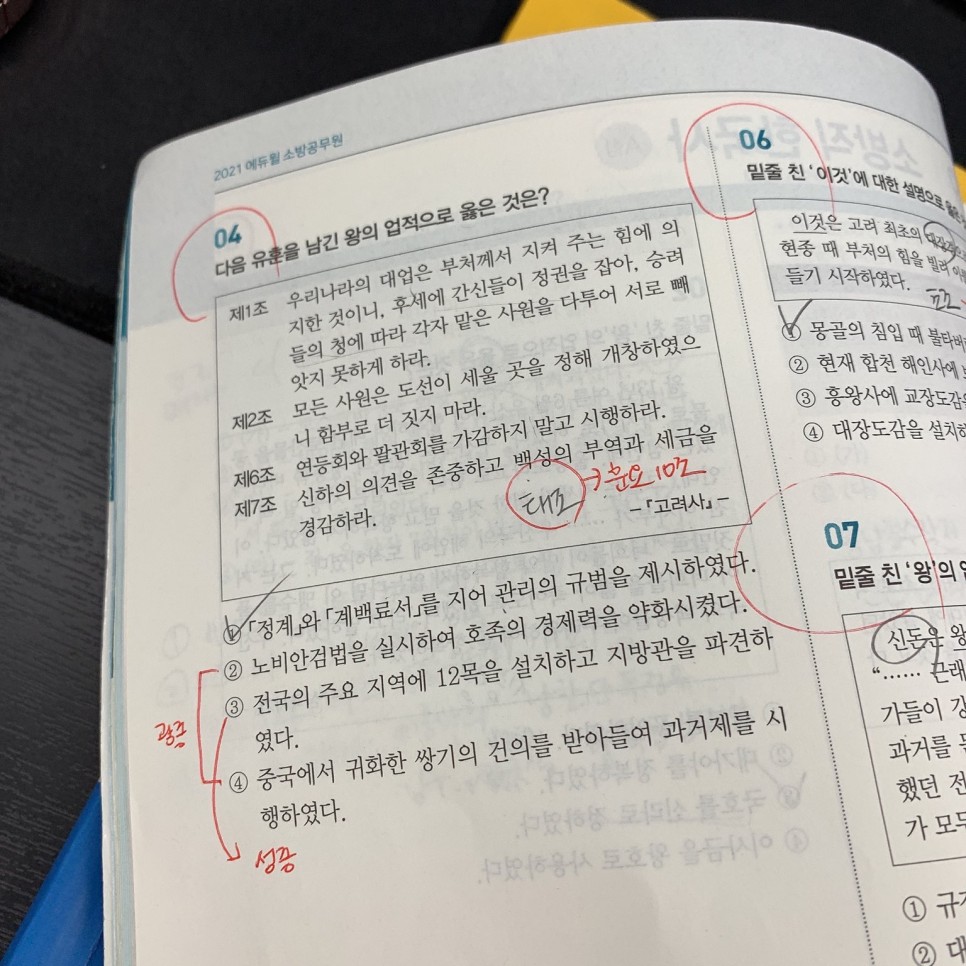 2021 에듀윌 소방공무원
04
다음 유훈을 남긴 왕의 업적으로 옳은 것은?
제1조 우리나라의 대업은 부처께서 지켜 주는 힘에 의
지한 것이니, 후세에 간신들이 정권을 잡아, 승려
들의 청에 따라 각자 맡은 사원을 다투어 서로 빼
앗지 못하게 하라.
제2조 모든 사원은 도선이 세울 곳을 정해 개창하였으
니 함부로 더 짓지 마라.
제6조 연등회와 팔관회를 가감하지 말고 시행하라.
제7조 신하의 의견을 존중하고 백성의 부역과 세금을
경감하라.
태조 → 훈요 10조
-『고려사』-
① 『정계』와 『계백료서』를 지어 관리의 규범을 제시하였다.
② 노비안검법을 실시하여 호족의 경제력을 약화시켰다.
③ 전국의 주요 지역에 12목을 설치하고 지방관을 파견하
였다.
④ 중국에서 귀화한 쌍기의 건의를 받아들여 과거제를 시
행하였다.
광종
성종
06
밑줄 친 '이것'에 대한 설명으로
이것은 고려 최초의
현종 때 부처의 힘을 빌려
들기 시작하였다.
① 몽골의 침입 때 불타버
② 현재 합천 해인사에
③ 흥왕사에 교장도감
④ 대장도감을 설치
07
밑줄 친 '왕'의
신돈은 왕
"…… 근래
가들이 강
과거를
했던 전
가 모두
① 규
② 대